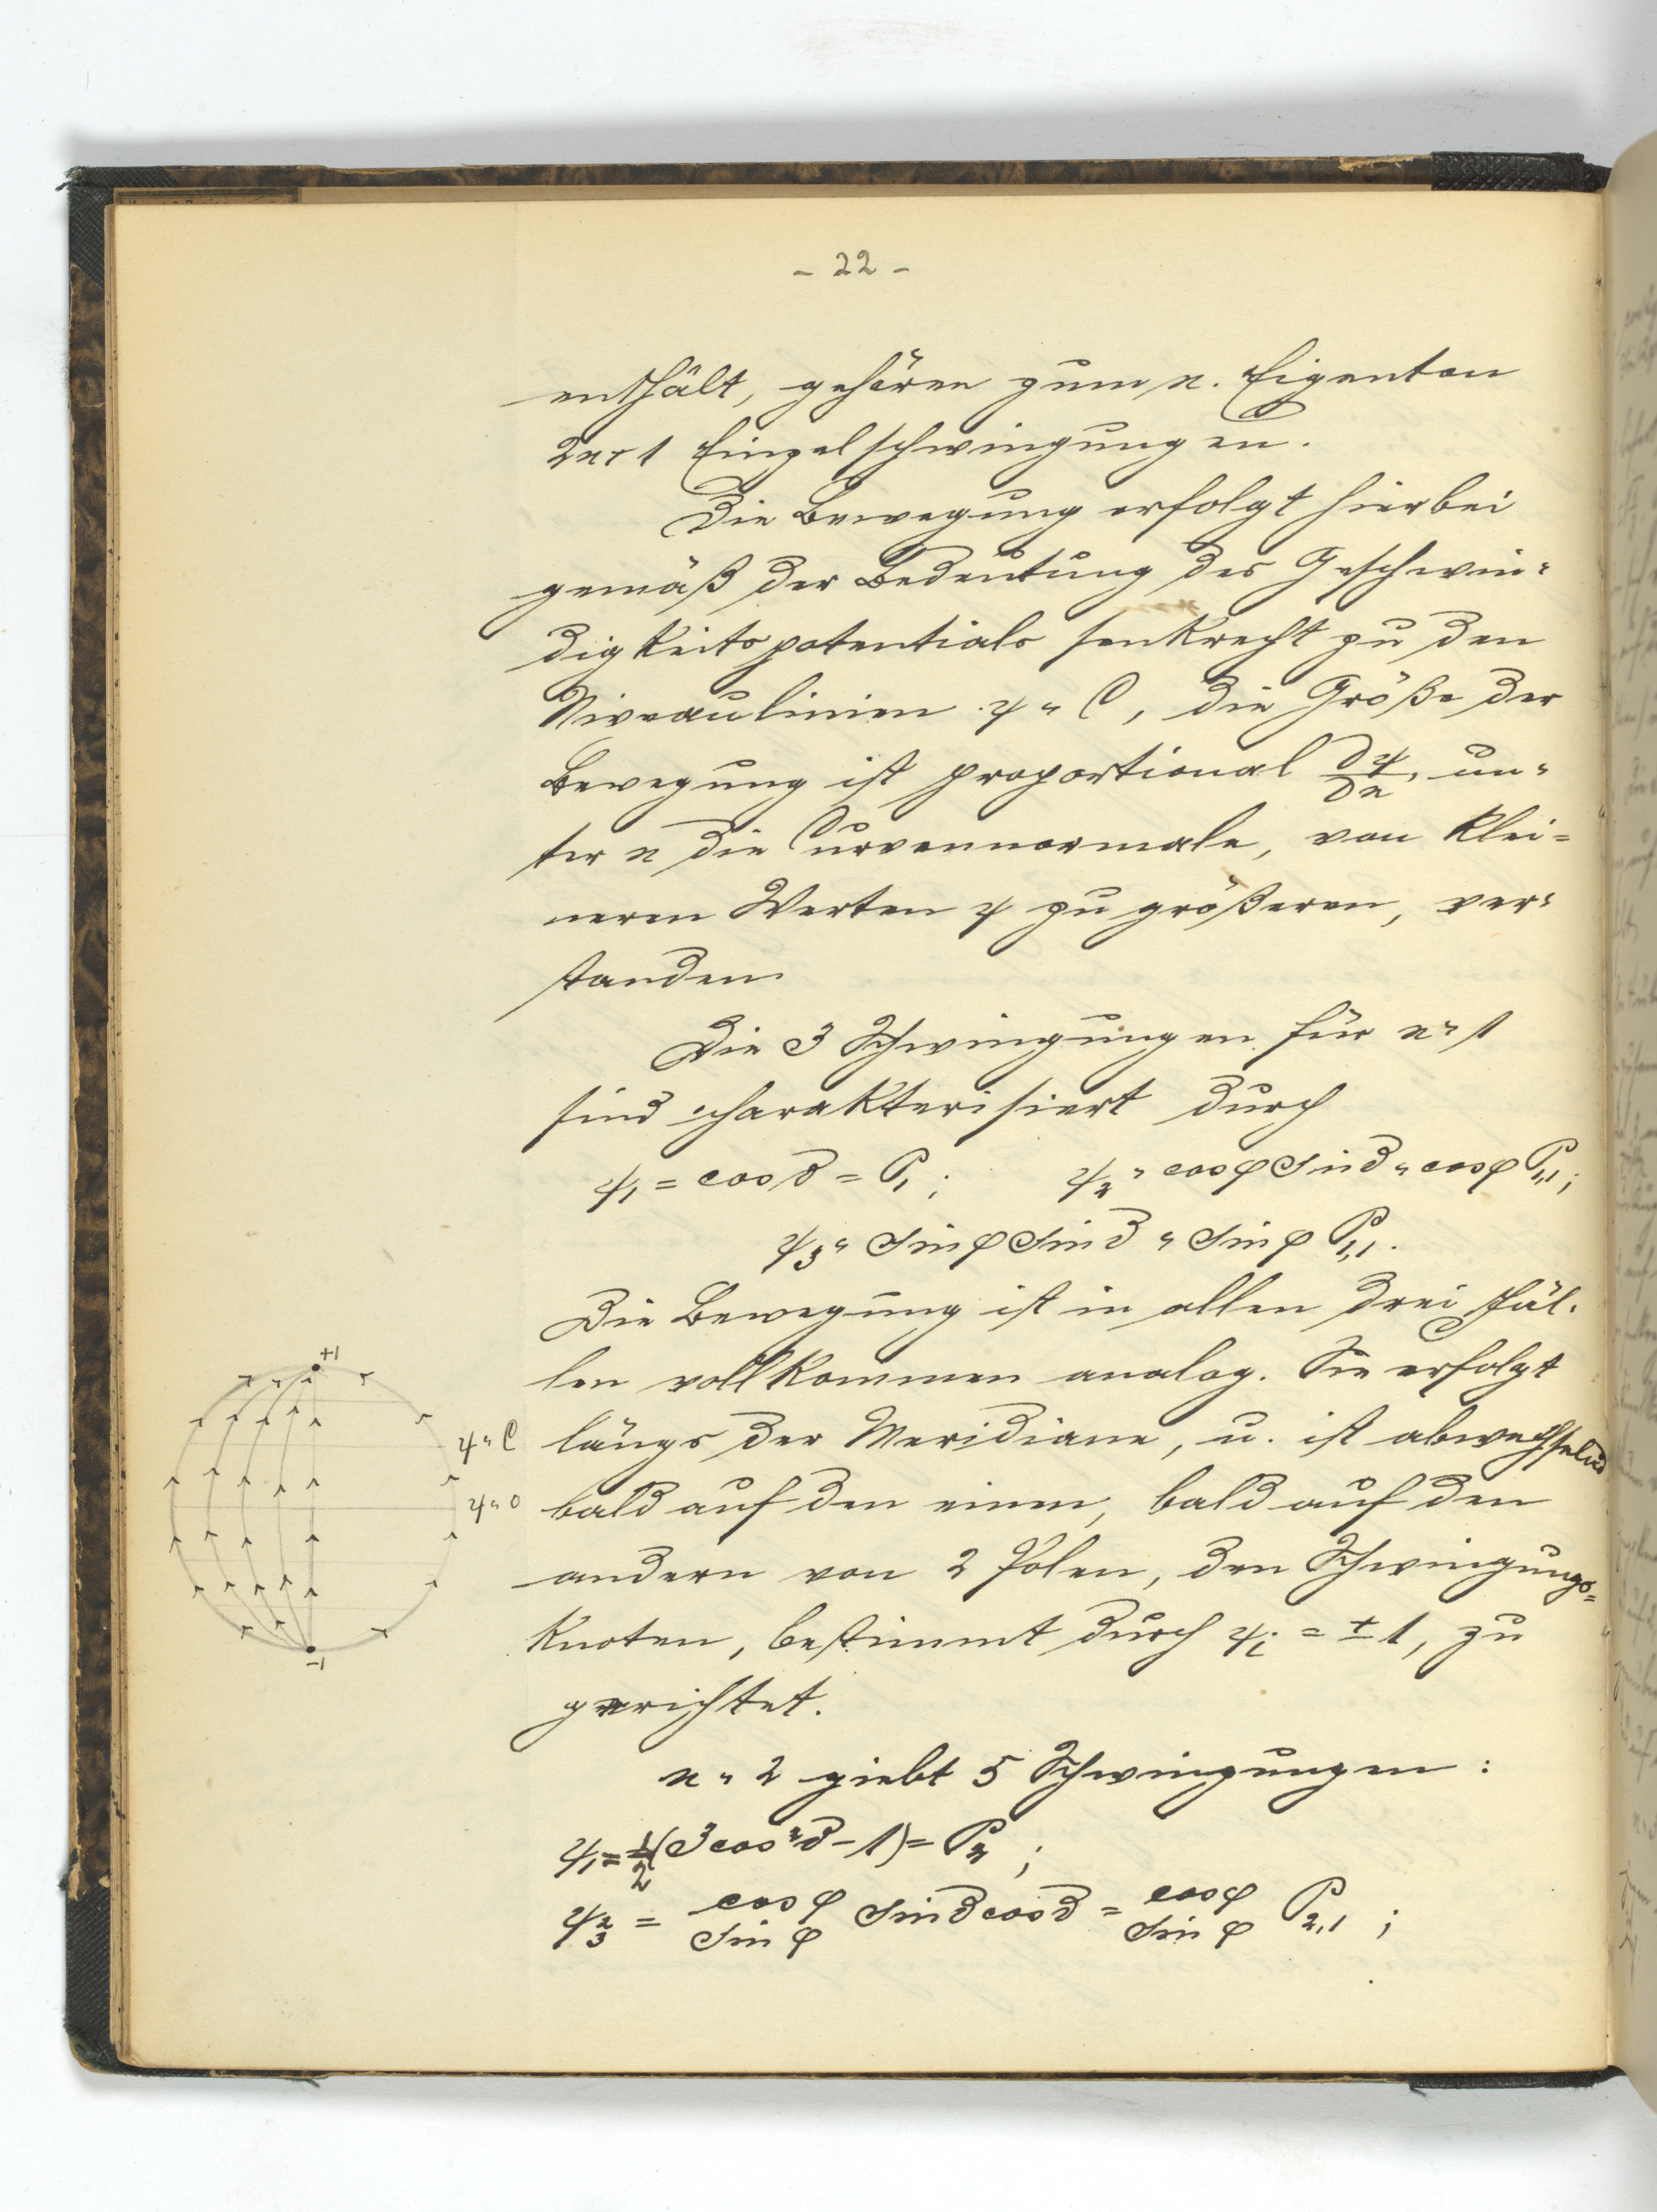 - 22 -
enthält, gehören zum n. Eigenton
2n+1 Einzelschwingungen.
Die Bewegung erfolgt hierbei
gemäß der Bedeutung des Geschwin-
digkeitspotentials senkrecht zu den
Niveaulinien ψ = C, die Größe der
Bewegung ist proportional ∂ψ/∂n, un-
ter n die Curvennormale, von klei-
neren Werten ψ zu größeren, ver-
standen.
Die 3 Schwingungen für n=1
sind charakterisiert durch
ψ₁ = cos ϑ = P₁ ; ψ₂ = cos φ sin ϑ = cos φ P₁,₁ ;
ψ₃ = sin φ sin ϑ = sin φ P₁,₁.
Die Bewegung ist in allen drei Fäl-
len vollkommen analog. Sie erfolgt
längs der Meridiane, u. ist abwechselnd
bald auf den einen, bald auf den
andern von 2 Polen, den Schwingungs-
knoten, bestimmt durch ψᵢ = ± 1, zu
gerichtet.
n = 2 giebt 5 Schwingungen :
ψ₁ = ½(3 cos²ϑ - 1) = P₂ ;
ψ₂ ₃ = cos φ sin φ sin ϑ cos ϑ = cos φ sin φ P₂,₁ ;
+1
ψ = C
ψ = 0
-1